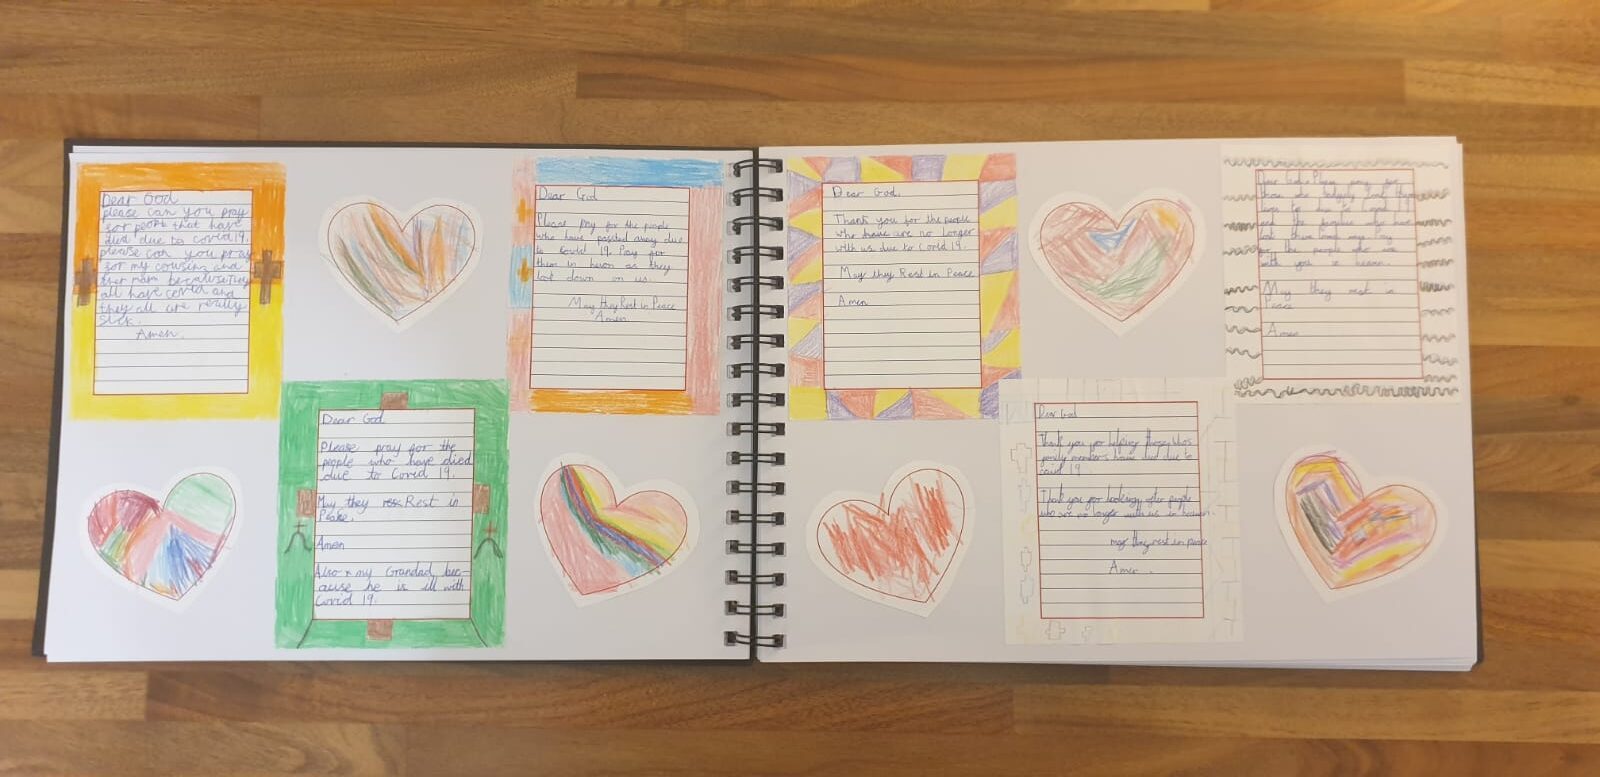 Dear God
please can you pray
for people that have
died due to covid 19.
please can you pray
for my cousins and
their mam because they
all have covid and
they all are really
sick.
Amen.
Dear God
Please pray for the
people who have died
due to Covid 19.
May they res Rest in
Peake.
Amen
Also my Grandad bec-
ause he is ill with
Covid 19.
Dear God
Please pray for the people
who have passed away due
to Covid 19. Pray for
them in as they
look down on us.
May they Rest in Peace
Amen
Dear God.
Thank you for the people
who have are no longer
with us due to Covid 19.
May they Rest in Peace
Amen
Dear God
Thank you for helping those who's
family members have died due to
covid 19.
Thank you for looking after people
who are no longer with us in heaven.
may they rest in peace
Amen
Dear God Please pray for
those who
to Covid 19
have
lost
for the people who are
with you in heaven.
May they rest in
Peace
Amen